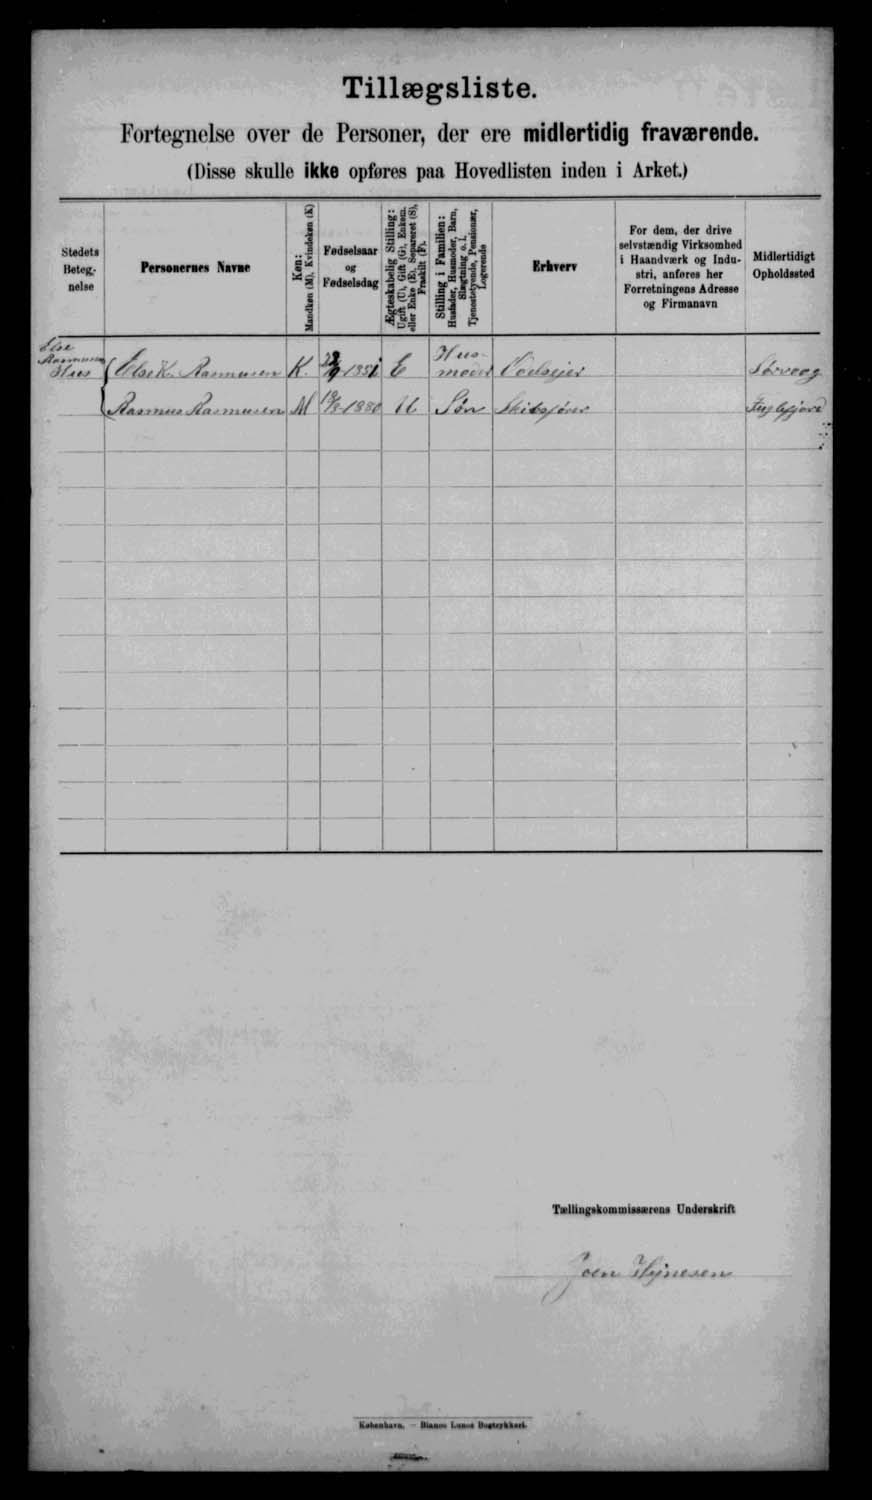 Tillægsliste.
Fortegnelse over de Personer, der ere midlertidig fraværende.
(Disse skulle ikke opføres paa Hovedlisten inden i Arket.)
Stedets
Beteg-
nelse
Personernes Navne
Køn:
Mandkøn (M), Kvindekøn (K)
Fødselsaar
og
Fødselsdag
Ægteskabelig Stilling:
Ugift (U), Gift (G), Enkem.
eller Enke (E), Separeret (S),
Fraskilt (F).
Stilling i Familien:
Husfader, Husmoder, Barn,
Slægtning o. l.
Tjenestetyende, Pensionær,
Logerende
Erhverv
For dem, der drive
selvstændig Virksomhed
i Haandværk og Indu-
stri, anføres her
Forretningens Adresse
og Firmanavn
Midlertidigt
Opholdssted
Else
Rasmusens
Hus
Else K. Rasmusen K. 1851 E Hus-
moder Sørvaag
Rasmus Rasmusen M 1880 U Søn Skibsfører Fuglefjord
Tællingskommissærens Underskrift
Joen
København. — Bianco Lunos Bogtrykkeri.